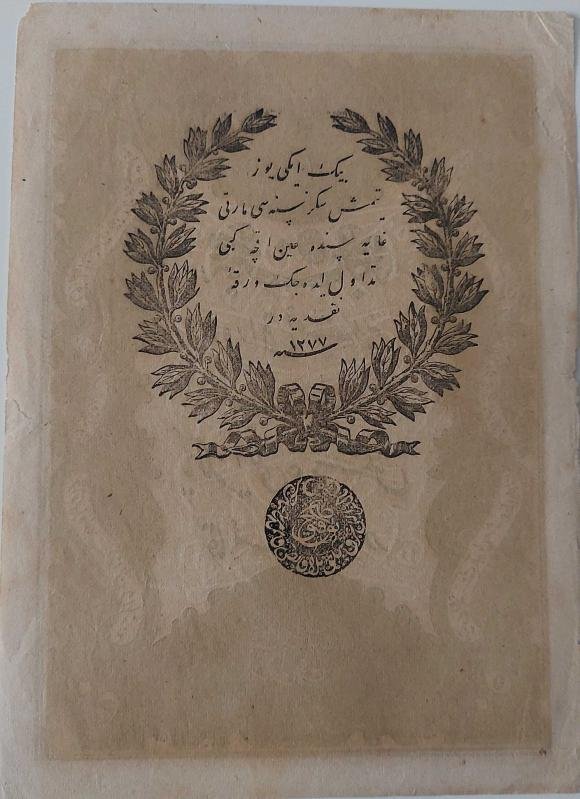 بيك ايكی يوز
يتمش سكز سنه سی مارتی
غايه سنده عين اقچه كبی
تداول ايده جك ورقهٔ
نقديه در
سنه ١٢٧٧